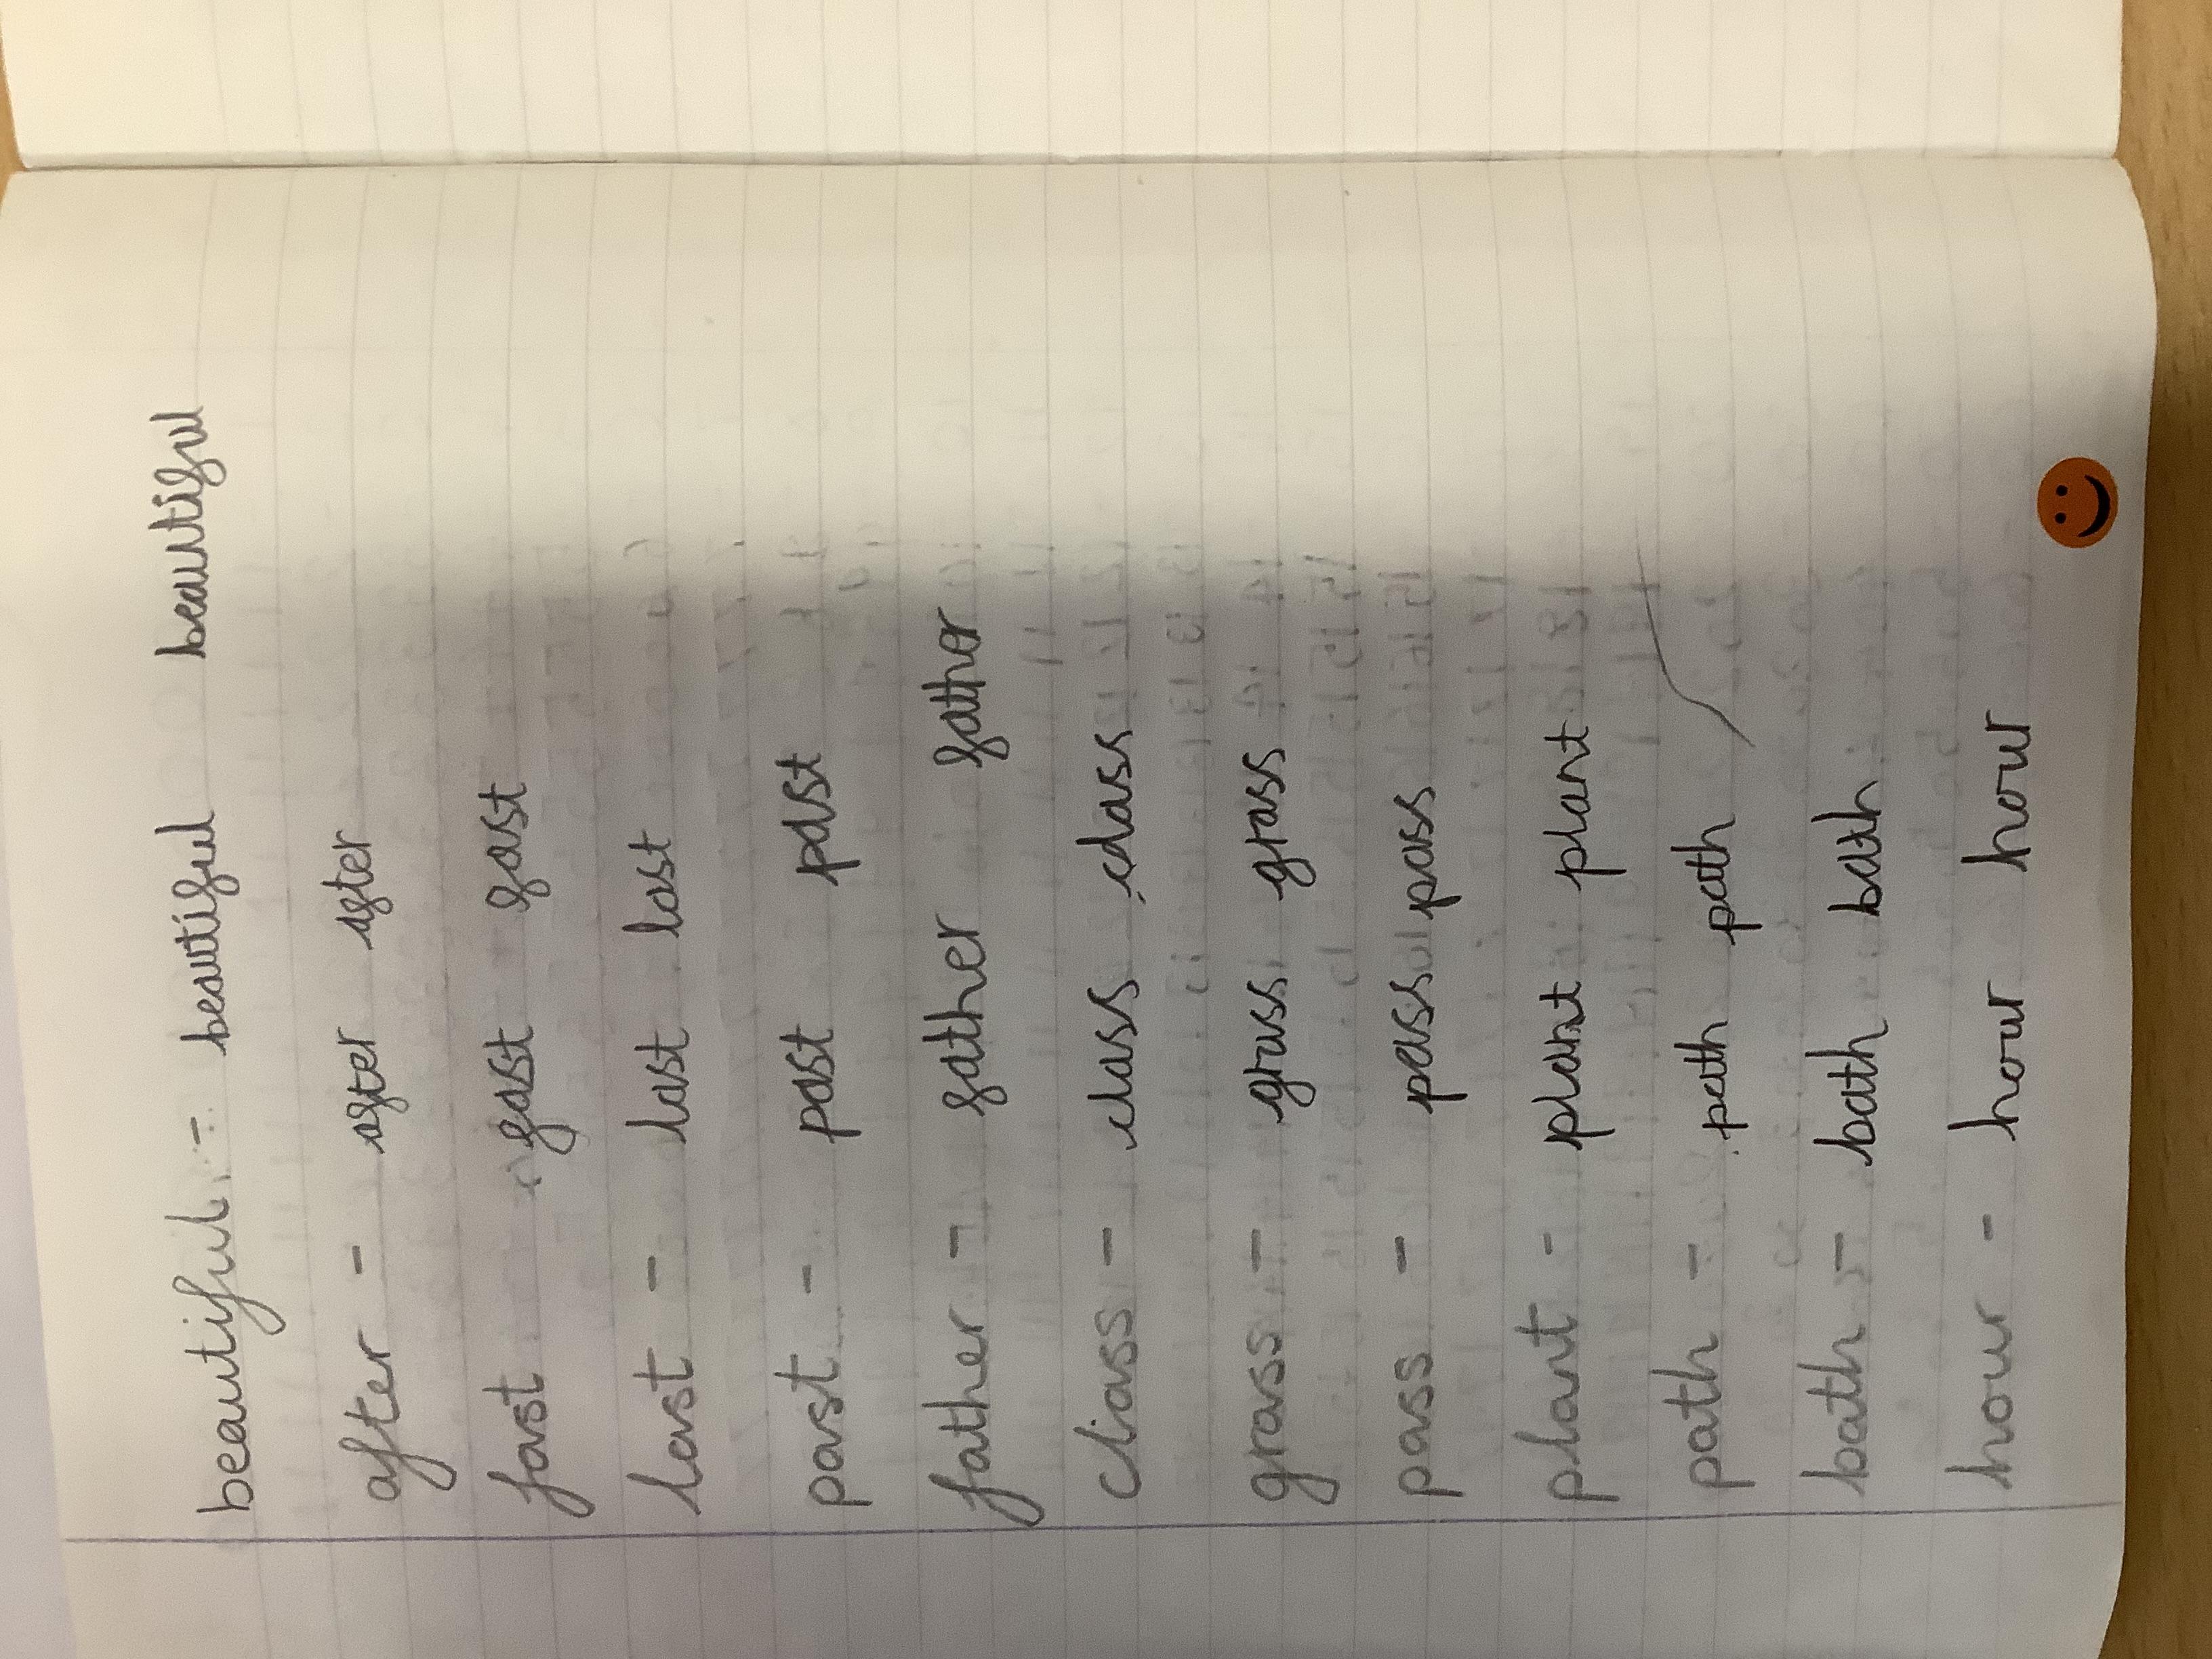 beautiful - beautiful beautiful
after - after after
fast fast fast
last - last last
past - past past
father - father father
class - class class
grass - grass grass
pass - pass pass
plant - plant plant
path - path path
bath - bath bath
hour - hour hour